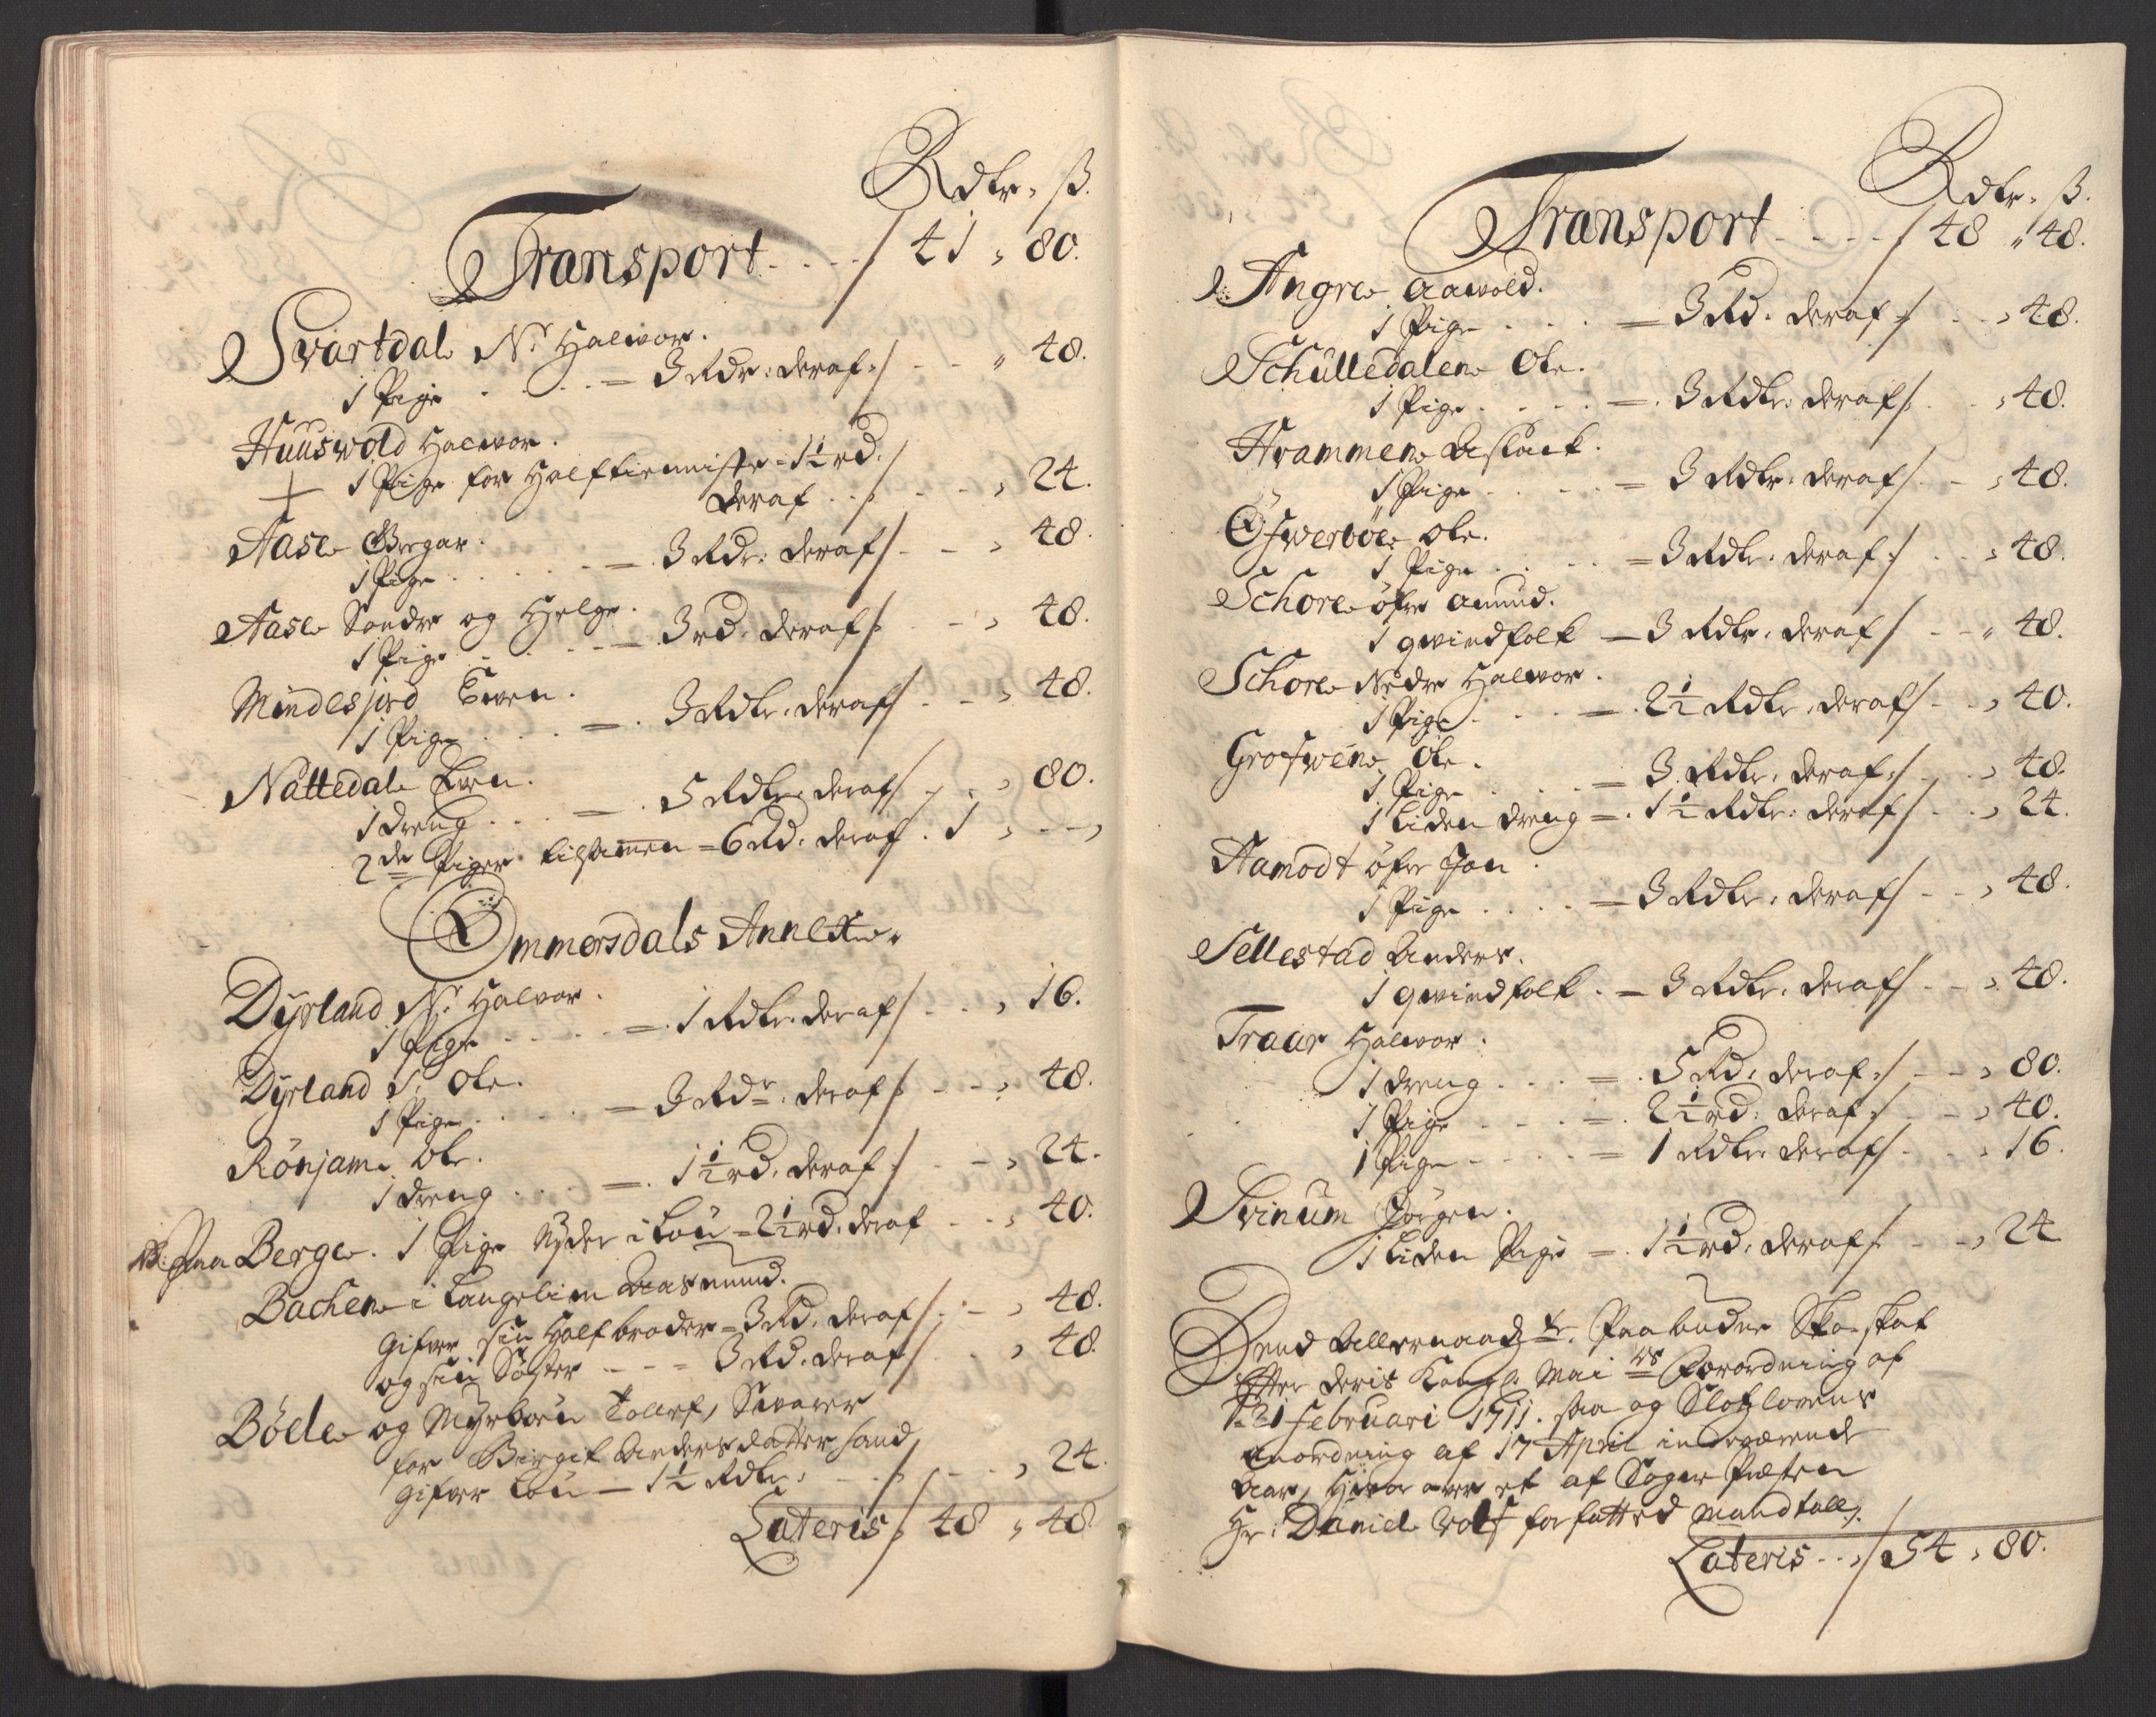 Rdlr. ß.
Transport - - - - / 41 , 80.
Svartdal Nr. Halvor.
1 Pige . . . = 3 Rdr: deraf :/ - - „ 48.
Huuswold Halvor.
1 Pige for Halftiermiste = 1½ rd.
deraf . . : / - - , 24.
Aase Gregar.
1 Pige . . . . . =. 3 Rdr: deraf / - - , 48.
Aase Sondre og Helge.
1 Pige . . . . = 3 rd. deraf / - , 48.
Mindesjord Swen.
1 Pige . . . . =. 3 Rdlr. deraf / - - , 48.
Nattedal Swen.
1 dreng . . . =. 5 Rdlr. deraf / . . , 80.
2de Piger tilsammen = 6 Rd. deraf . 1 , - - ,
Ommersdals Annex.
Dyrland Nr. Halvor.
1 Pige . . . . =. 1 Rdlr. deraf / - . , 16.
Dyrland S. Ole.
1 Pige . . . . = 3 Rdr. deraf / - - , 48.
Rönjam Ole.
1 dreng . . . =. 1½ rd. deraf :/ - - , 24.
NB. Paa Berge. 1 Pige Nyder i Lön = 2½ rd. deraf - . , 40.
Bachen i Langelim Aasmund.
Gifver sin Halfbroder = 3 Rd. deraf / : - , 48.
og sin Söster - - - = 3 Rd. deraf / . . , 48.
Böele og Myrboen Tollef, Swarer
for Birgit Andersdatter hand
gifver Lön — 1½ Rdlr: - - / - - , 24.
Lateris / 48 , 48
Rdlr. ß.
Transport - - - - / 48 „ 48.
Angre Aawold.
1 Pige . . . = 3 Rd. deraf :/ - - , 48.
Schulledalen Ole.
1 Pige . . . . =. 3 Rdlr: deraf /: . , 48.
Hrammen Aslack.
1 Pige . . . . = 3 Rdlr: deraf / . - , 48.
Öfwerböe Ole.
1 Pige . . . = 3 Rdlr. deraf :/ . . , 48.
Schore öfre Amund.
1 qwindfolk — 3 Rdlr. deraf / - - „ 48.
Schore Nedre Halvor.
1 Pige . . . =. 2½ Rdlr. deraf / - . , 40.
Grofwen Ole.
1 Pige . . . = 3 Rdlr. deraf :/ . . , 48.
1 liden dreng =. 1½ Rdlr: deraf / . . , 24.
Aamodt öfre Jon.
1 Pige . . . . = 3 Rdlr. deraf / - - , 48.
Sellestad Anders.
1 qwindfolk . = 3 Rdlr. deraf / - - , 48.
Traar Halvor.
1 dreng . . . =. 5 Rd. deraf :/ - - , 80.
1 Pige - - - =. 2½ rd. deraf :/ . - , 40.
1 Pige - - - - = 1 Rdlr deraf / . . , 16.
Svinum Jörgen.
1 liden Pige =. 1½ rd. deraf / - - , 24
Dend Allernaadigste Paabudne Skoe skat
Efter deris Kongl. Mai:ts Forordning af
21 februari 1711. saa og Slotzlovens
Anordning af 17 April indeværende
Aar, Hvor over et af Sogne Præsten
Hr: Daniel Wolf forfatted Mandtall /.
Lateris - - , / 54 , 80.